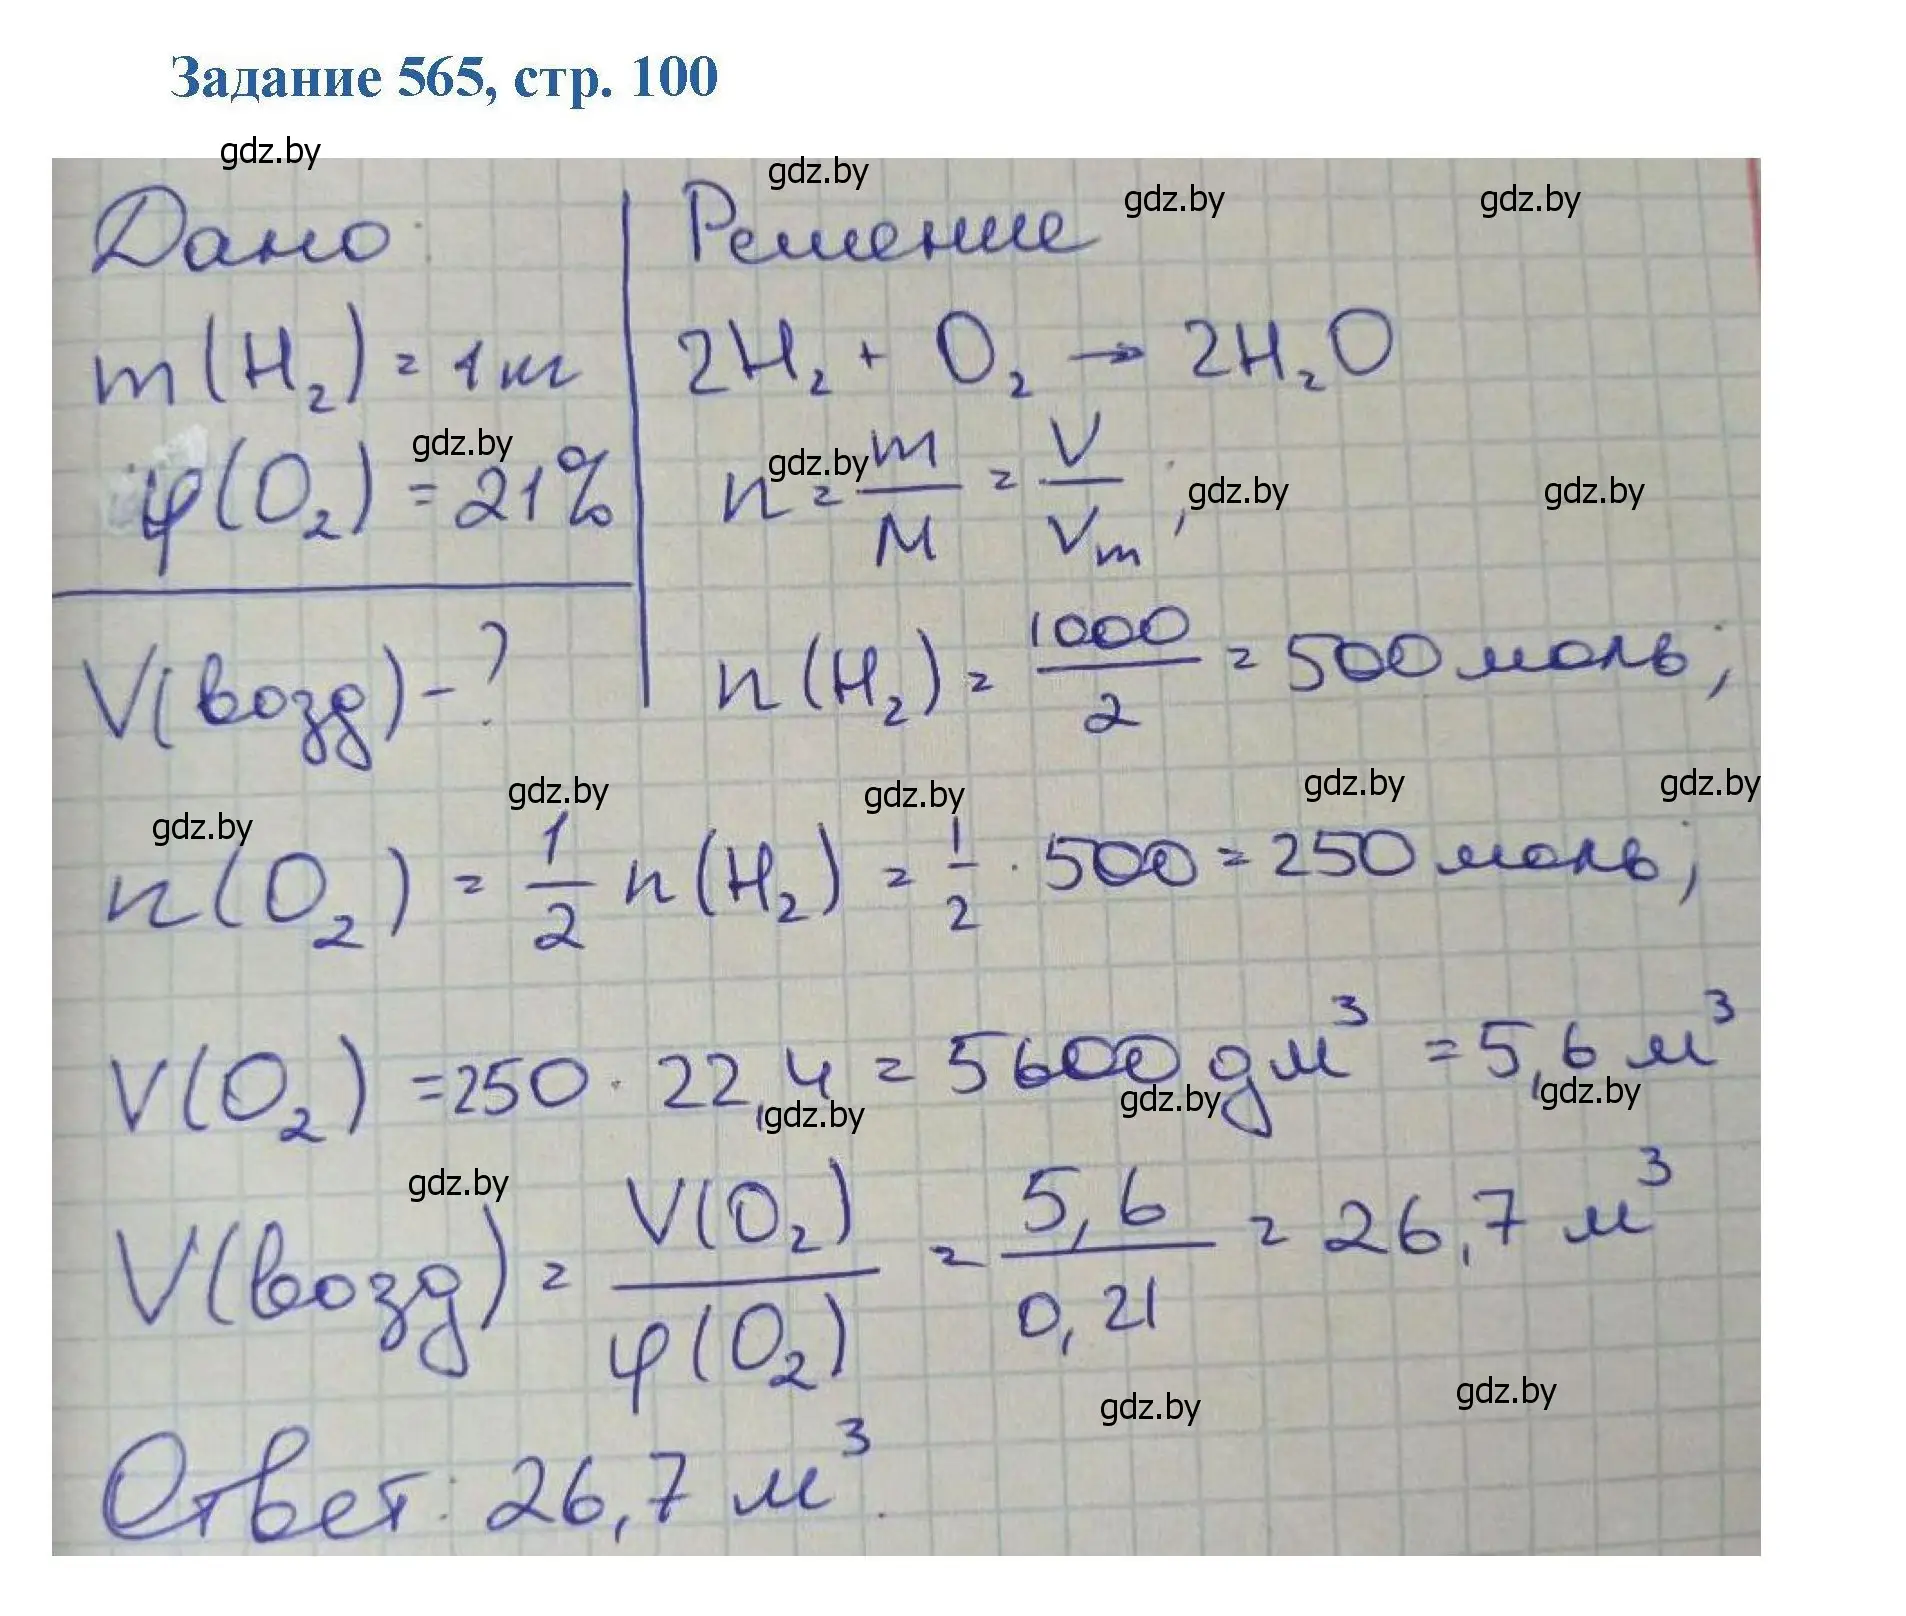 Задание 565, стр. 100
gdz.by
gdz.by
gdz.by
gdz.by
Дано:
m(H₂) = 1 кг
φ(O₂) = 21%
gdz.by
V(возд) - ?
Решение
2H₂ + O₂ → 2H₂O
gdz.by
n = m/M = V/Vm;
gdz.by
gdz.by
n(H₂) = 1000/2 = 500 моль;
gdz.by
gdz.by
gdz.by
gdz.by
gdz.by
n(O₂) = 1/2 n(H₂) = 1/2 · 500 = 250 моль;
V(O₂) = 250 · 22,4 = 5600 дм³ = 5,6 м³
gdz.by
gdz.by
gdz.by
gdz.by
V(возд) = V(O₂)/φ(O₂) = 5,6/0,21 = 26,7 м³
gdz.by
gdz.by
Ответ: 26,7 м³.